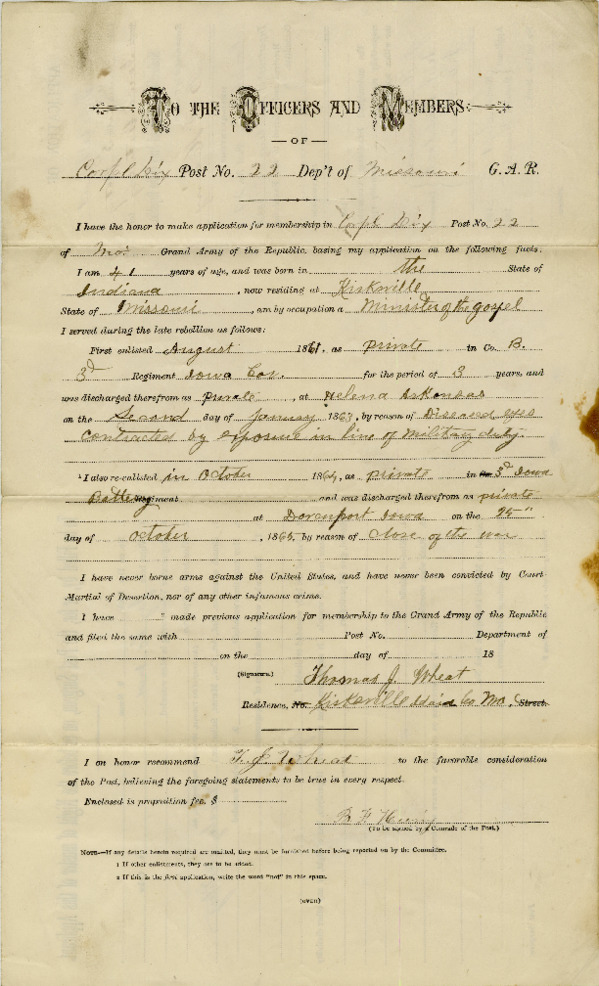 To the Officers and Members
— OF —
Corpl Dix Post No. 22 Dep't of Missouri G. A. R.
I have the honor to make application for membership in Corpl Dix Post No. 22
of Mo. Grand Army of the Republic, basing my application on the following facts.
I am 41 years of age, and was born in the State of
Indiana, now residing at Kirksville
State of Missouri, am by occupation a Minister of the gospel
I served during the late rebellion as follows:
First enlisted August 1861, as private in Co. B.
3d Regiment Iowa Cav. for the period of 3 years, and
was discharged therefrom as private, at Helena Arkansas
on the Second day of January 1863, by reason of Diseased eyes
contracted by exposure in line of military duty.
¹ I also re-enlisted in October 1864, as private in Co. 3d Iowa
Battery Regiment and was discharged therefrom as private
at Davenport Iowa on the 25"
day of October, 1865, by reason of close of the war
I have never borne arms against the United States, and have never been convicted by Court
Martial of Desertion, nor of any other infamous crime.
I have ² made previous application for membership to the Grand Army of the Republic
and filed the same with Post No. Department of
on the day of 18
(Signature.) Thomas J. Wheat
Residence, No. Kirksville Adair Co Mo, Street.
I on honor recommend T. J. Wheat to the favorable consideration
of the Post, believing the foregoing statements to be true in every respect.
Enclosed is proposition fee, $
B F
(To be signed by a Comrade of the Post.)
NOTE.—If any details herein required are omitted, they must be furnished before being reported on by the Committee.
1 If other enlistments, they are to be added.
2 If this is the first application, write the word "not" in this space.
(OVER)